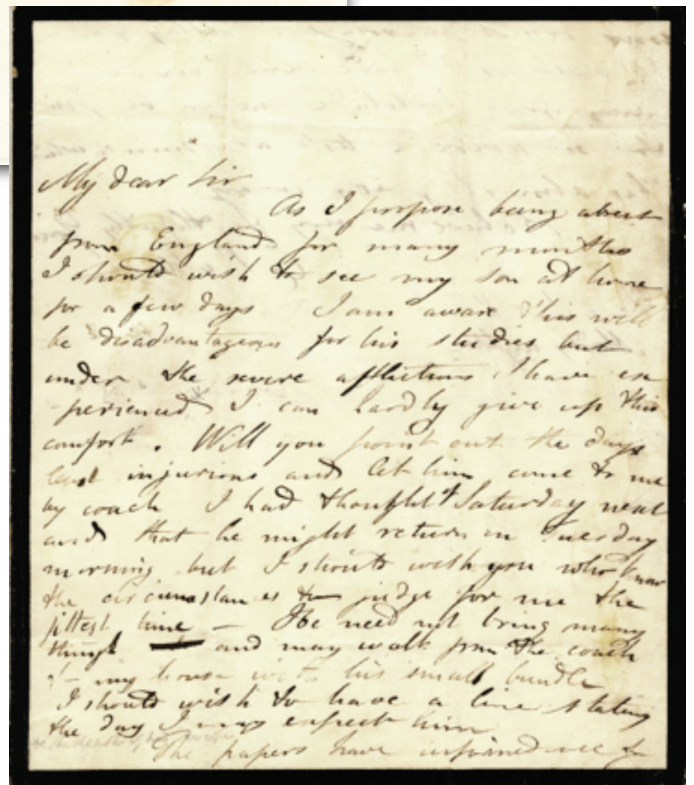 My dear Sir
As I propose being absent
from England for many months
I should wish to see my son at home
for a few days I am aware this will
be disadvantageous for his studies but
under the severe afflictions I have ex
perienced I can hardly give up this
comfort. Will you point out the days
least injurious and let him come to me
by coach I had thought of Saturday next
and that he might return on Tuesday
morning but I should wish you who know
the circumstances to judge for me the
fittest time – He need not bring many
things and may walk from the coach
to my house with his small bundle
I should wish to have a line stating
the day I may expect him
The papers have informed me